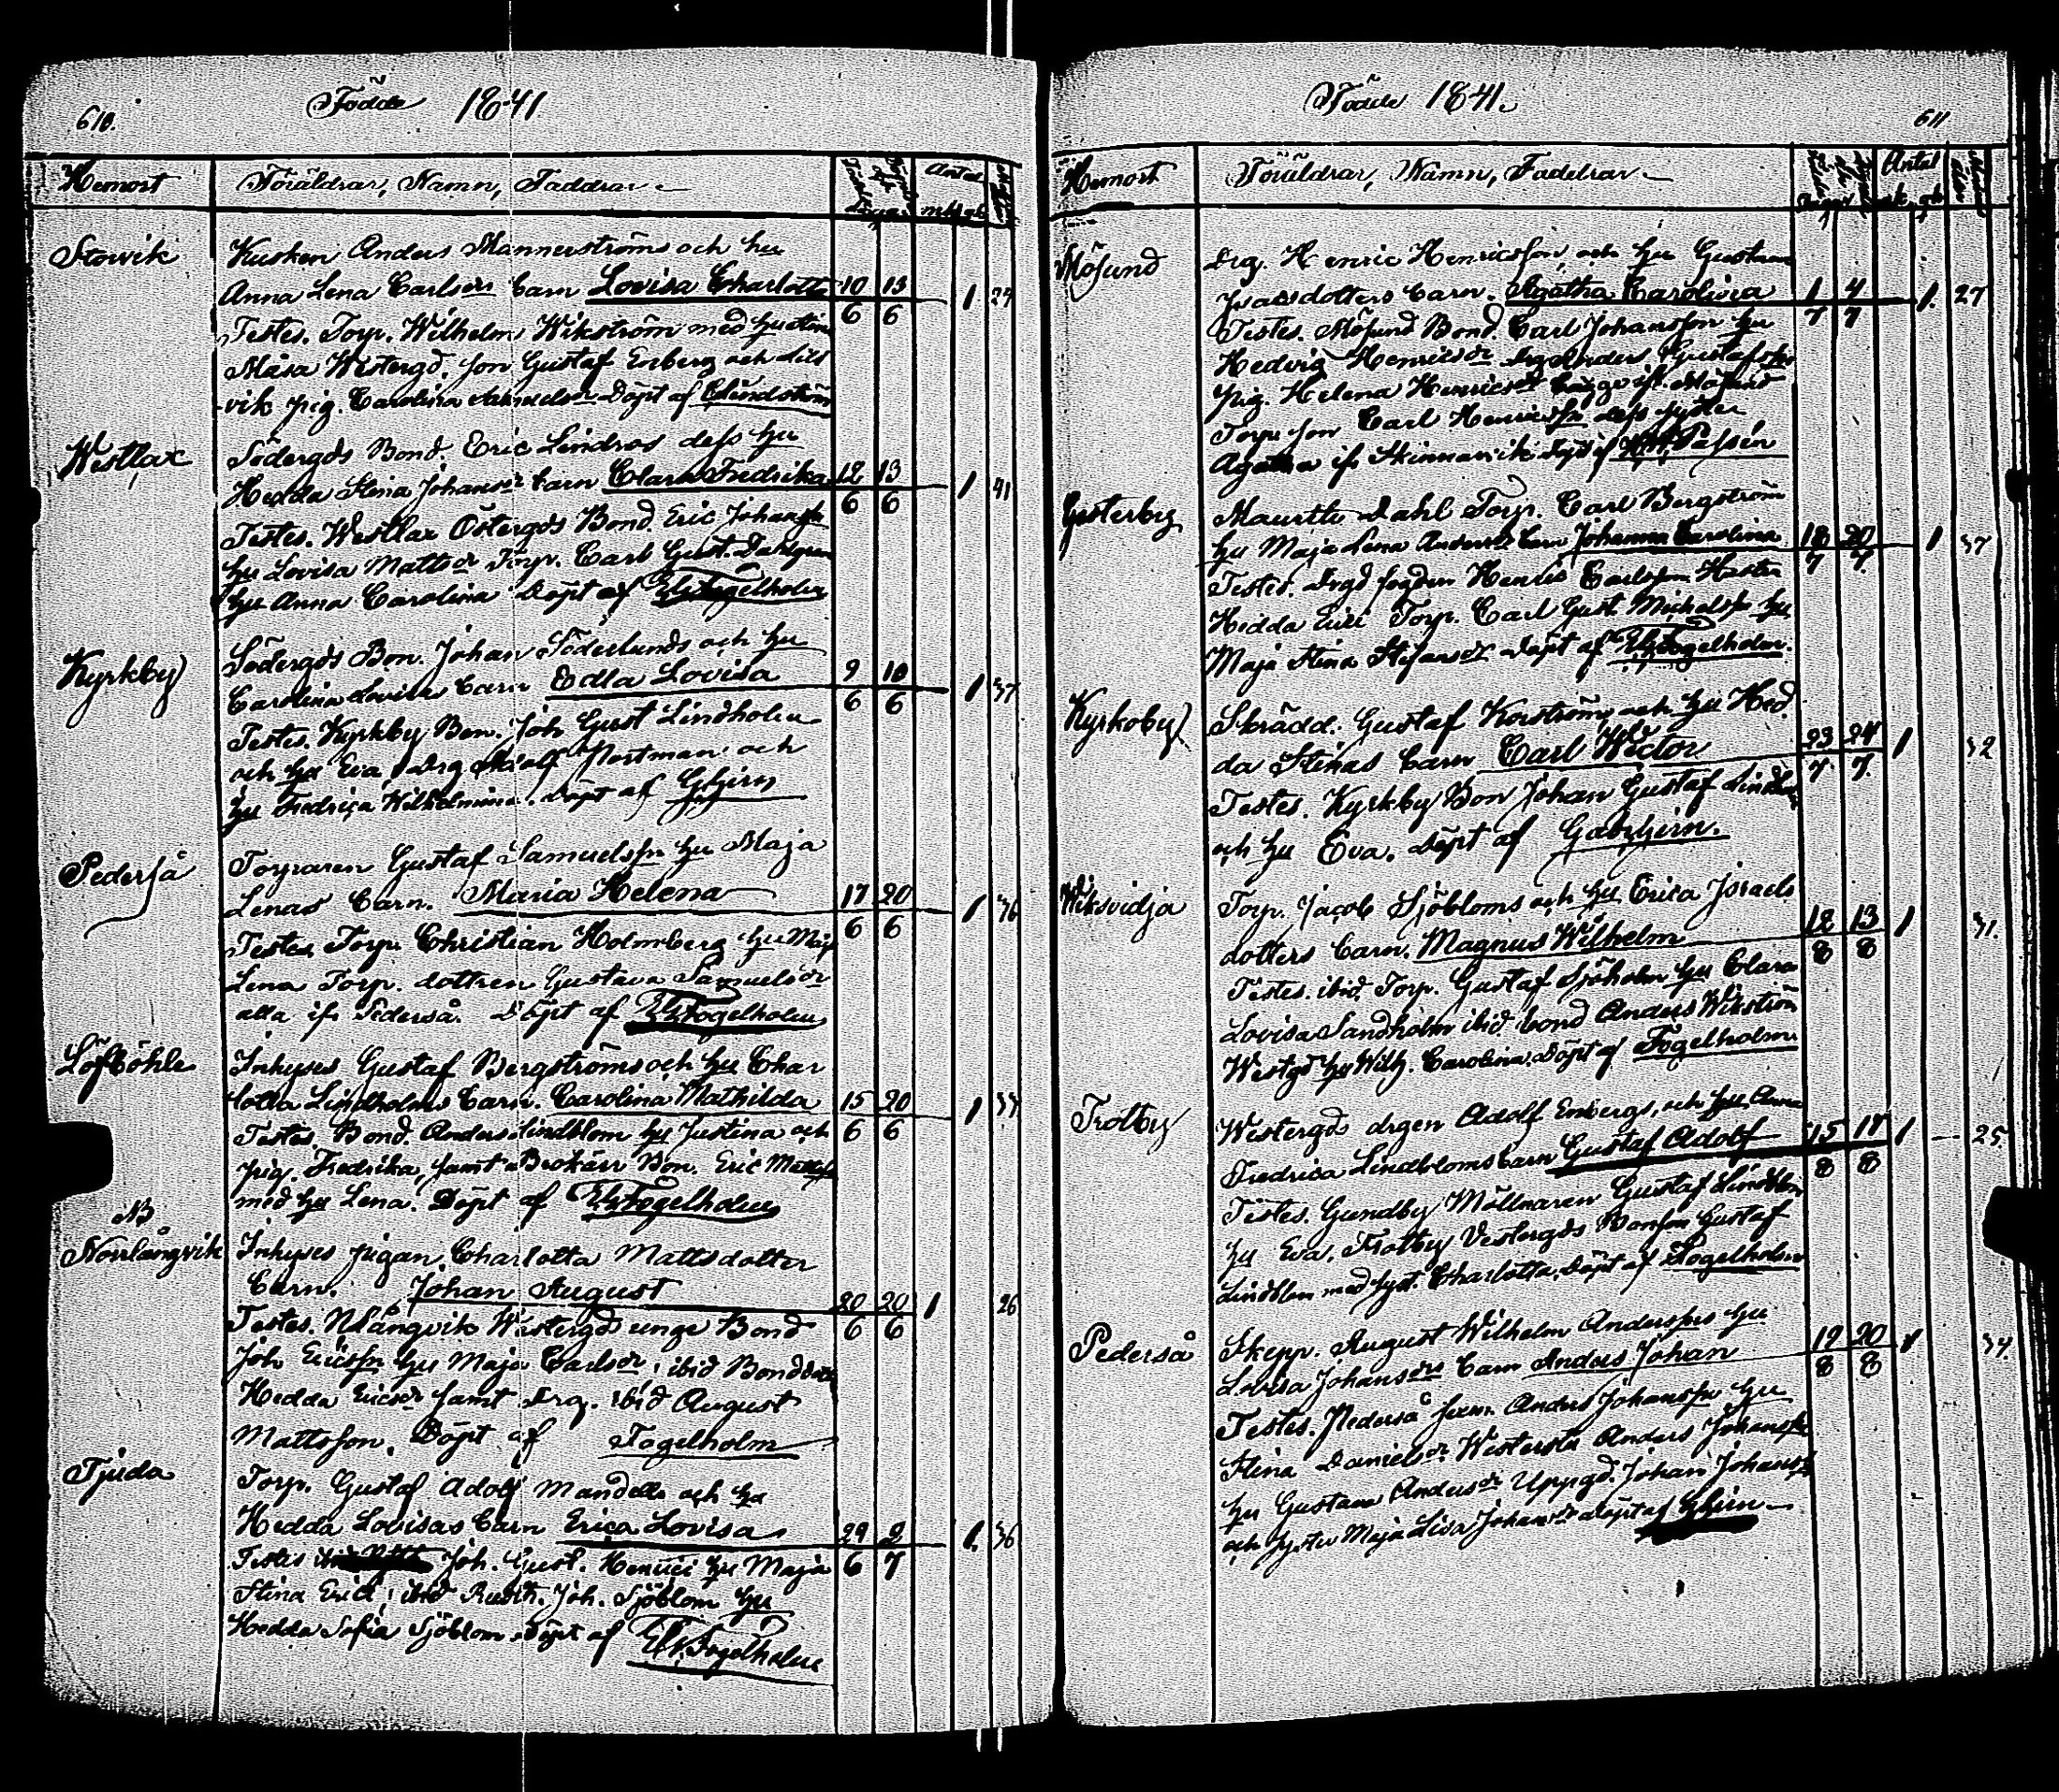 610.
Födde 1841.
Hemort
Föräldrar, Namn, Faddrar
Antal
Storvik
Kusken Anders Mannerströms och hu
Anna Lena Carlsdrs barn Lovisa Charlotta 10 13 1 29
6 6
Testes. Torp. Wilhelm Wikström med hustru
Måsa Westergd. son Gustaf Enberg och
vik pig. Carolina Döpt af Lindström
Westlax
Södergds Bond. Eric Lindros dess hu
Hedda Stina Johansdr barn Clara Fredrika 12 13 1 41
6 6
Testes. Westlax Östergds Bond. Eric Johanss
hu Lovisa Mattsdr Torp. Carl Gust. Dahlgren
hu Anna Carolina Döpt af Fogelholm
Kyrkby
Södergds Bon. Johan Söderlunds och hu
Carolina Lovisa barn Edla Lovisa 9 10 1 37
6 6
Testes. Kyrkby Bon. Joh Gust Lindholm
och hu Eva, Drg Adolf Nortman och
hu Fredrica Wilhelmina. Döpt af
Pederså
Torparen Gustaf Samuelssn hu Maja
Lenas barn. Maria Helena 17 20 1 36
6 6
Testes Torp. Christian Holmberg hu Maja
Lena Torp. dottren Gustava Samuelsdr
alla ifr Pederså. Döpt af Fogelholm
Löfböhle
Inhyses Gustaf Bergströms och hu Char
lotta Lindholms barn. Carolina Mathilda 15 20 1
6 6
Testes. Bond. Anders Lindblom hu Justina och
pig. Fredrika, samt Brokärr Bon. Eric Mattss
med hu Lena. Döpt af Fogelholm
NB
Norrlångvik
Inhyses pigan Charlotta Mattsdotter
barn. Johan August 20 20 1 26
6 6
Testes. Nlångvik Westergd unge Bond
Joh Ericssn hu Maja Carlsdr, ibid Bonddotr
Hedda Ericsdr samt Drg. ibid August
Mattsson. Döpt af Fogelholm
Tjuda
Torp. Gustaf Adolf Mandells och hu
Hedda Lovisas barn Erica Lovisa 29 2 1 36
6 7
Testes Joh. Gust. Henrici hu Maja
Stina Erici, ibid Rusth. Joh. Sjöblom hu
Hedda Sofia Sjöblom Döpt af Fogelholm
Födde 1841.
611
Hemort
Föräldrar, Namn, Faddrar
Antal
Mösund
Drg. Henric Henricsson och hu Gustava
Isacsdotters barn. Agatha Carolina 1 4 1 27
7 7
Testes. Mösund Bond. Carl Johansson hu
Hedvig Henricsdr drg Anders Gustafsson
pig. Helena Henricsdr ifr Mösund
Torp. son Carl Henricssn dess syster
Agatha ifr Skinnarvik Döpt af Passén
Gesterby
Dahl Torp. Carl Bergström
hu Maja Lena Andersdrs barn Johanna Carolina 18 20 1 37
7 7
Testes. Drgd fogden Henric Carlsson
Hedda Torp. Carl Gust Michelss hu
Maja Stina Stefansdr Döpt af Fogelholm.
Kyrkoby
Skrädd. Gustaf Korström och hu Hed
da Stinas barn Carl Wictor 23 24 1 32
7 7
Testes. Kyrkby Bon Johan Gustaf Lindholm
och hu Eva. Döpt af
Wiksvidja
Torp. Jacob Sjöbloms och hu Erica Israels
dotters barn. Magnus Wilhelm 12 13 1 31.
8 8
Testes. ibid. Torp. Gustaf Sjöholm hu Clara
Lovisa Sandholm ibid bond Anders Wikström
Westgd hu Wilh. Carolina Döpt af Fogelholm
Trotby
Westergds drgen Adolf Enbergs, och hu Anna
Fredrica Lindbloms barn Gustaf Adolf 15 18 1 — 25
8 8
Testes. Gundby Möllnaren Gustaf Lindblom
hu Eva. Trotby Vestergds Bonson Gustaf
Lindblom med syst. Charlotta. Döpt af Fogelholm
Pederså
Skepp. August Wilhelm Anderssns hu
Lovisa Johansdrs barn Anders Johan 19 20 1 34.
8 8
Testes. Pederså sexm. Anders Johanssn hu
Stina Danielsdr Anders Johanssn
hu Gustava Andersdr Uppgd. Johan Johanss
och syster Maja Lisa Johansdr döpt af